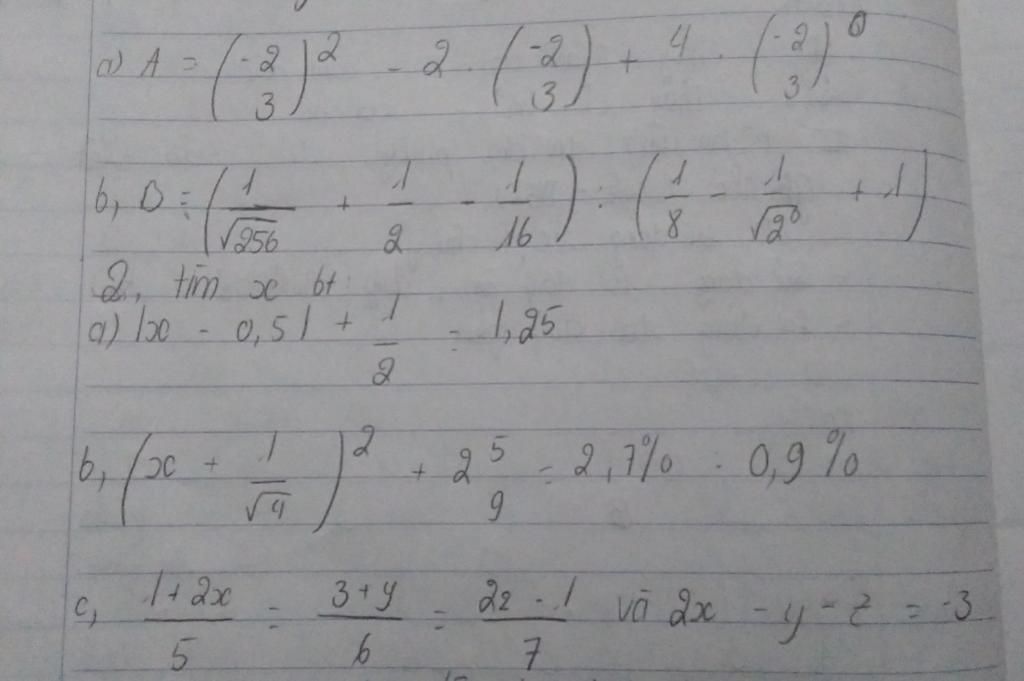 a) A = (-2/3)^2 - 2 . (-2/3) + 4 . (-2/3)^0
b, D = (1/√256 + 1/2 - 1/16) : (1/8 - 1/√2^8 + 1)
2, tìm x bt
a) |x - 0,5| + 1/2 = 1,25
b, (x + 1/√4)^2 + 2 5/9 = 2,7% : 0,9%
c, 1+2x/5 = 3+y/6 = 2z-1/7 và 2x - y - z = -3